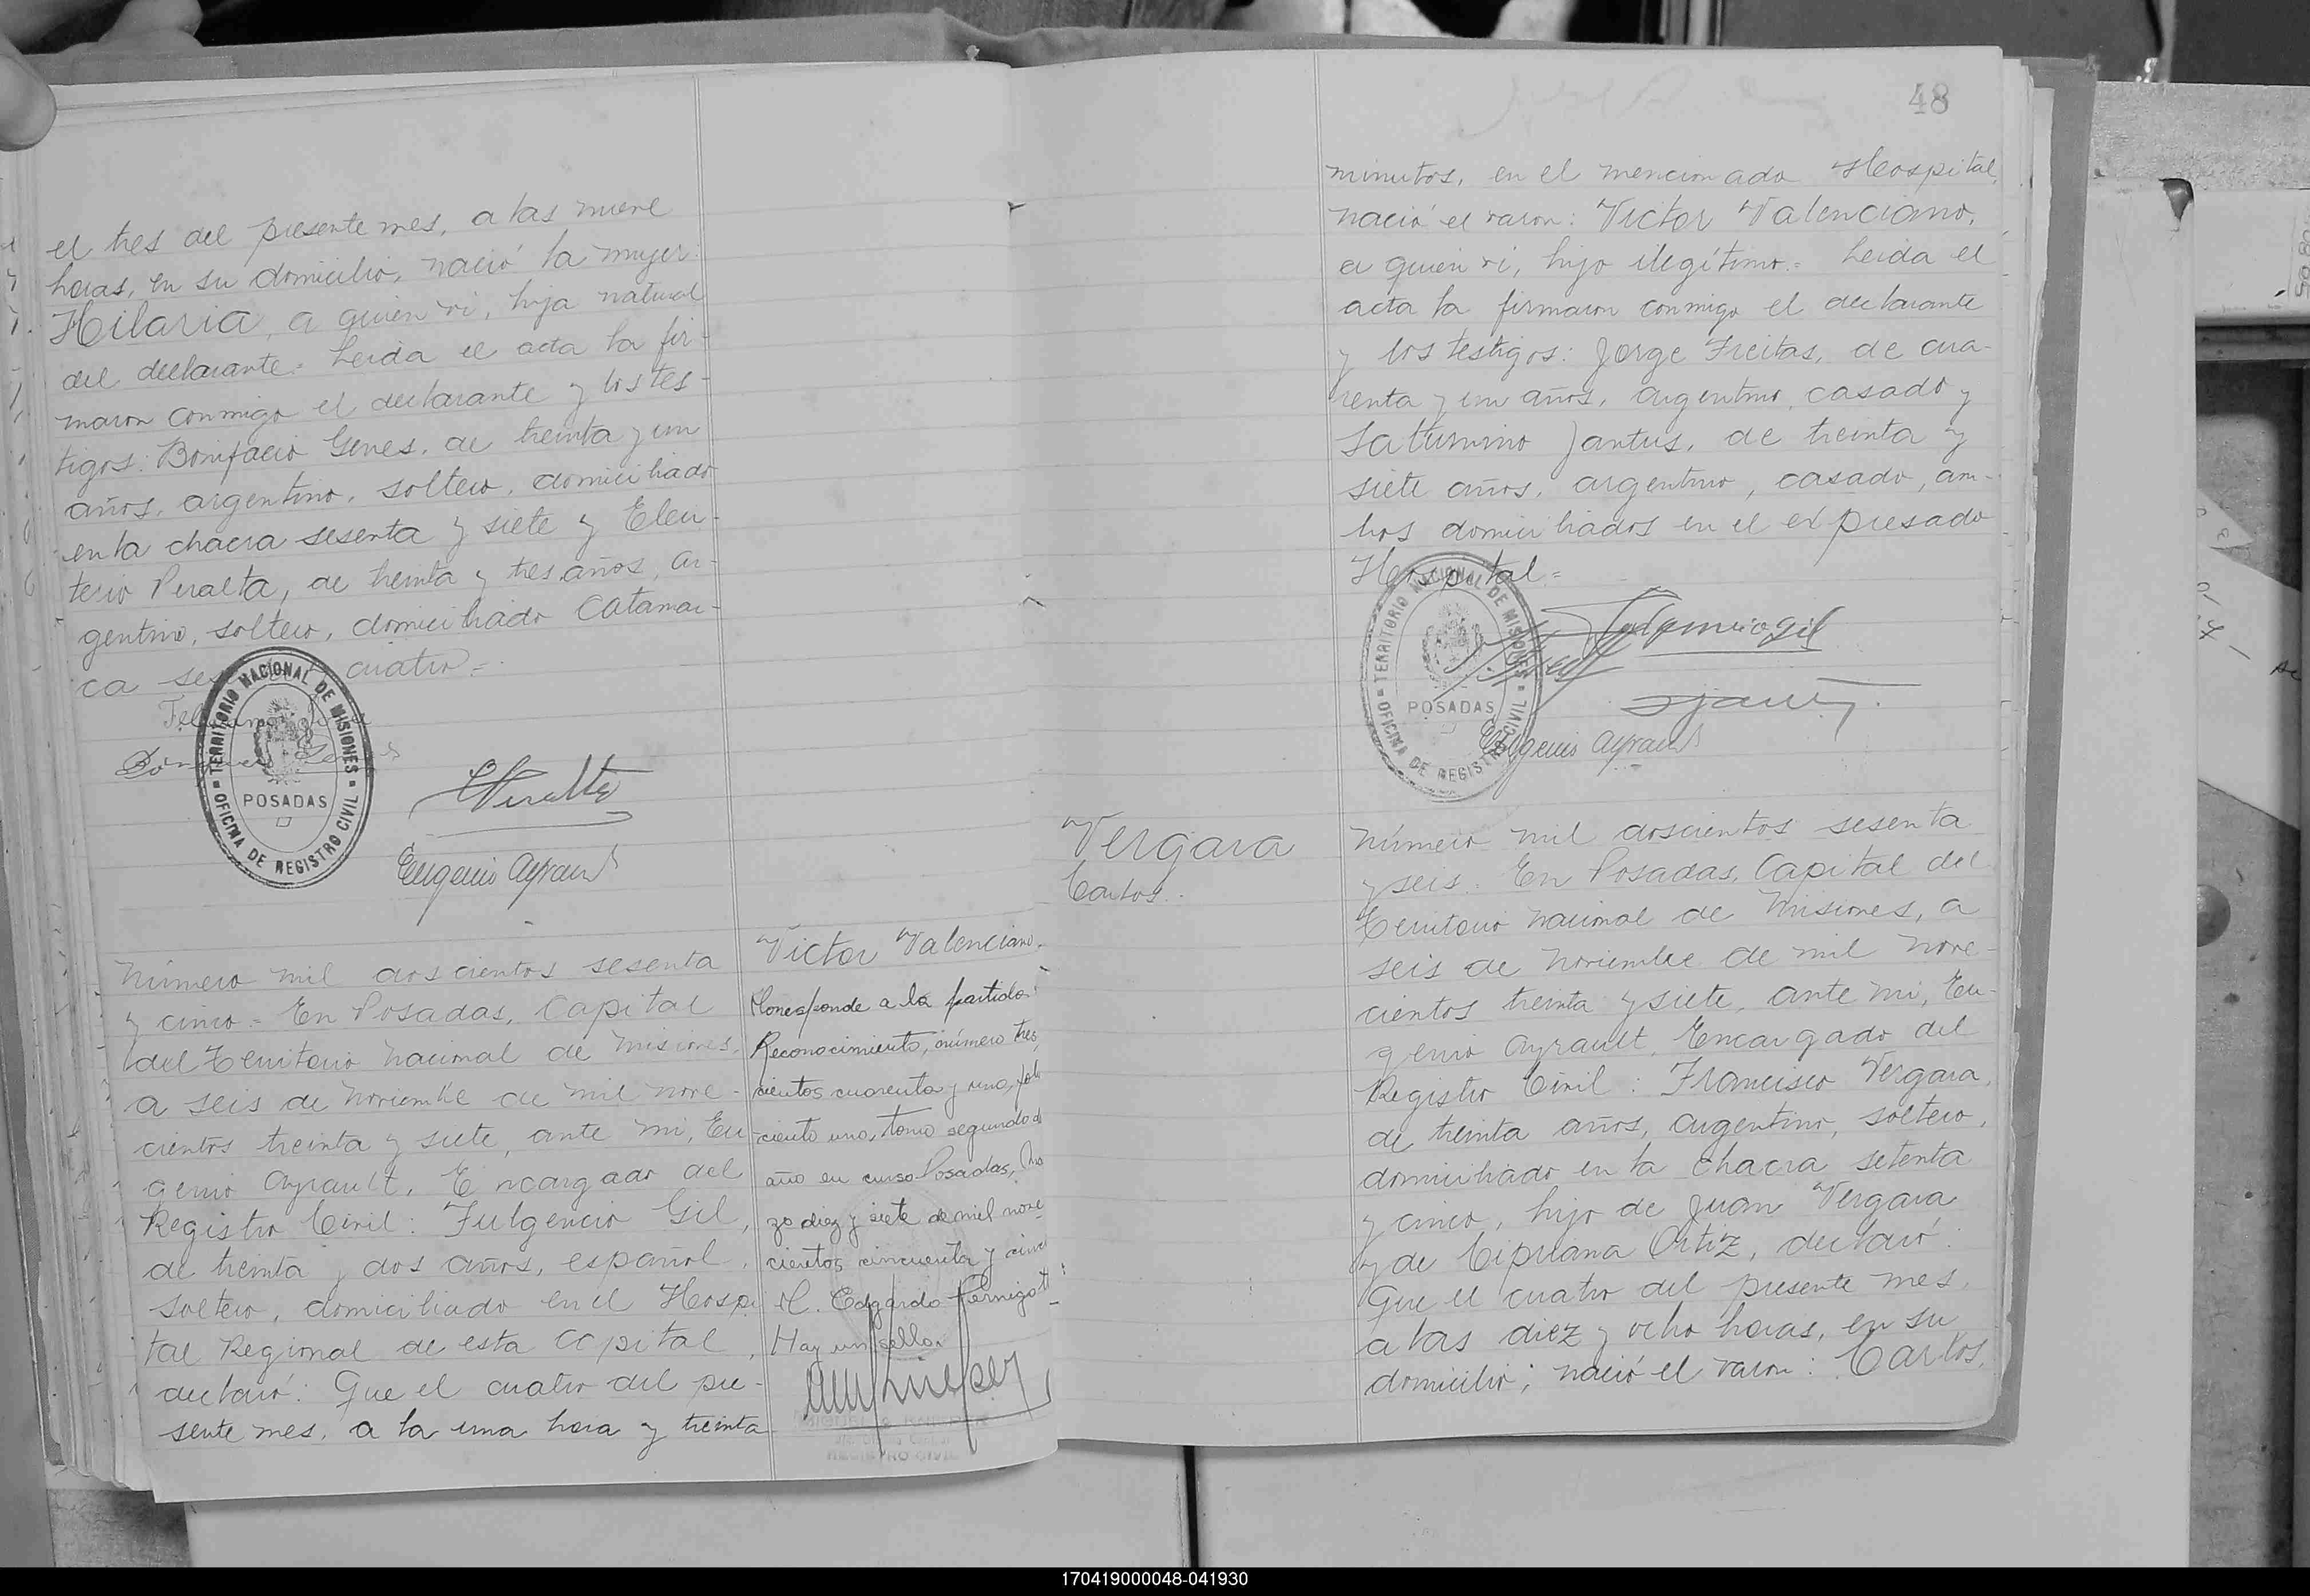 el tres del presente mes, a las nueve
horas, en su domicilio, nació la mujer:
Hilaria, a quien vi, hija natural
del declarante.= Leida el acta la fir-
maron conmigo el declarante y los tes-
tigos: Bonifacio Genes, de treinta y un
años, argentino, soltero, domiciliado
en la chacra sesenta y siete y Eleu-
terio Peralta, de treinta y tres años, ar-
gentino, soltero, domiciliado Catamar-
ca cuatro=
TERRITORIO NACIONAL DE MISIONES
POSADAS
OFICINA DE REGISTRO CIVIL
EPeralta
Eugenio Ayrault
Número mil doscientos sesenta
y cinco.= En Posadas, Capital
del Territorio Nacional de Misiones,
a seis de Noviembre de mil nove-
cientos treinta y siete, ante mi, Eu-
genio Ayrault, Encargado del
Registro Civil: Fulgencio Gil,
de treinta y dos años, español,
soltero, domiciliado en el Hospi
tal Regional de esta Capital,
declaró: Que el cuatro del pre-
sente mes, a la una hora y treinta
Victor Valenciano.
Corresponde a la partida
Reconocimiento, número tres,
cientos cuarenta y uno, foli
ciento uno, tomo segundo d
año en curso Posadas, Ma
zo diez y siete de mil nove-
cientos cincuenta y cinc
Edgardo Pernigoti
Hay un sello.
REGISTRO CIVIL
48
minutos, en el mencionado Hospital,
nació el varon: Victor Valenciano,
a quien vi, hijo ilegítimo.= Leida el
acta la firmaron conmigo el declarante
y los testigos: Jorge Freitas, de cua-
renta y un años, argentino, casado y
Saturnino Jantus, de treinta y
siete años, argentino, casado, am-
bos domiciliados en el expresado
Hospital=
TERRITORIO NACIONAL DE MISIONES
POSADAS
OFICINA DE REGISTRO CIVIL
Fulgencio Gil
Eugenio Ayrault
Vergara
Carlos.
Número mil doscientos sesenta
y seis. En Posadas, Capital del
Territorio Nacional de Misiones, a
seis de Noviembre de mil nove-
cientos treinta y siete, ante mi, Eu-
genio Ayrault, Encargado del
Registro Civil: Francisco Vergara,
de treinta años, argentino, soltero,
domiciliado en la chacra setenta
y cinco, hijo de Juan Vergara
y de Cipriana Ortiz, declaró:
Que el cuatro del presente mes,
a las diez y ocho horas, en su
domicilio; nació el varon: Carlos,
170419000048-041930